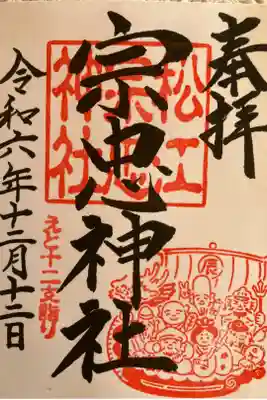 奉拝
松江
宗忠
神社
宗忠神社
えと十二支詣り
令和六年十二月十二日
辰